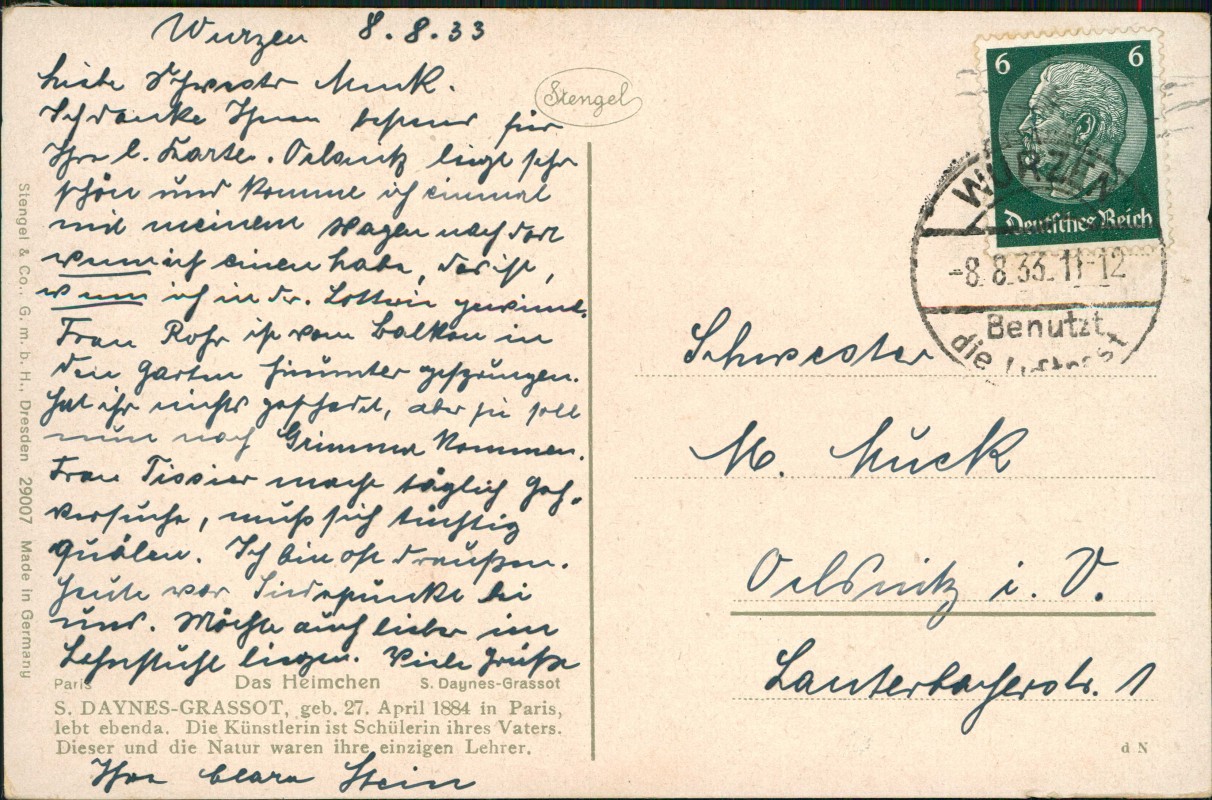 Wurzen 8.8.33
Liebe Schwester Muck.
Ich danke Ihnen bestens für
Ihre l. Karte. Oelsnitz liegt sehr
schön und komme ich einmal
mit meinem Wagen nach dort
wenn ich einen habe, das ist,
wenn ich in dr. Lotterie gewinne.
Frau Rohr ist vom Balkon in
den Garten hinunter gesprungen.
hat ihr nichts geschadt, aber sie soll
nun nach Grimma kommen.
Frau Tissier macht täglich Geh-
versuche, muß sich tüchtig
quälen. Ich bin oft draußen.
Heute war bei
uns. Möchte auch lieber im
Lehnstuhl liegen. Viele Grüße
Ihre Clara Stein
Paris Das Heimchen S. Daynes-Grassot
S. DAYNES-GRASSOT, geb. 27. April 1884 in Paris,
lebt ebenda. Die Künstlerin ist Schülerin ihres Vaters.
Dieser und die Natur waren ihre einzigen Lehrer.
Stengel & Co., G. m. b. H., Dresden 29007 Made in Germany
Stengel
6 6
Deutsches Reich
WURZEN
-8.8.33.11-12
Benutzt
die Luftpost
Schwester
M. Muck
Oelsnitz i. V.
Lauterbacherstr. 1
d N